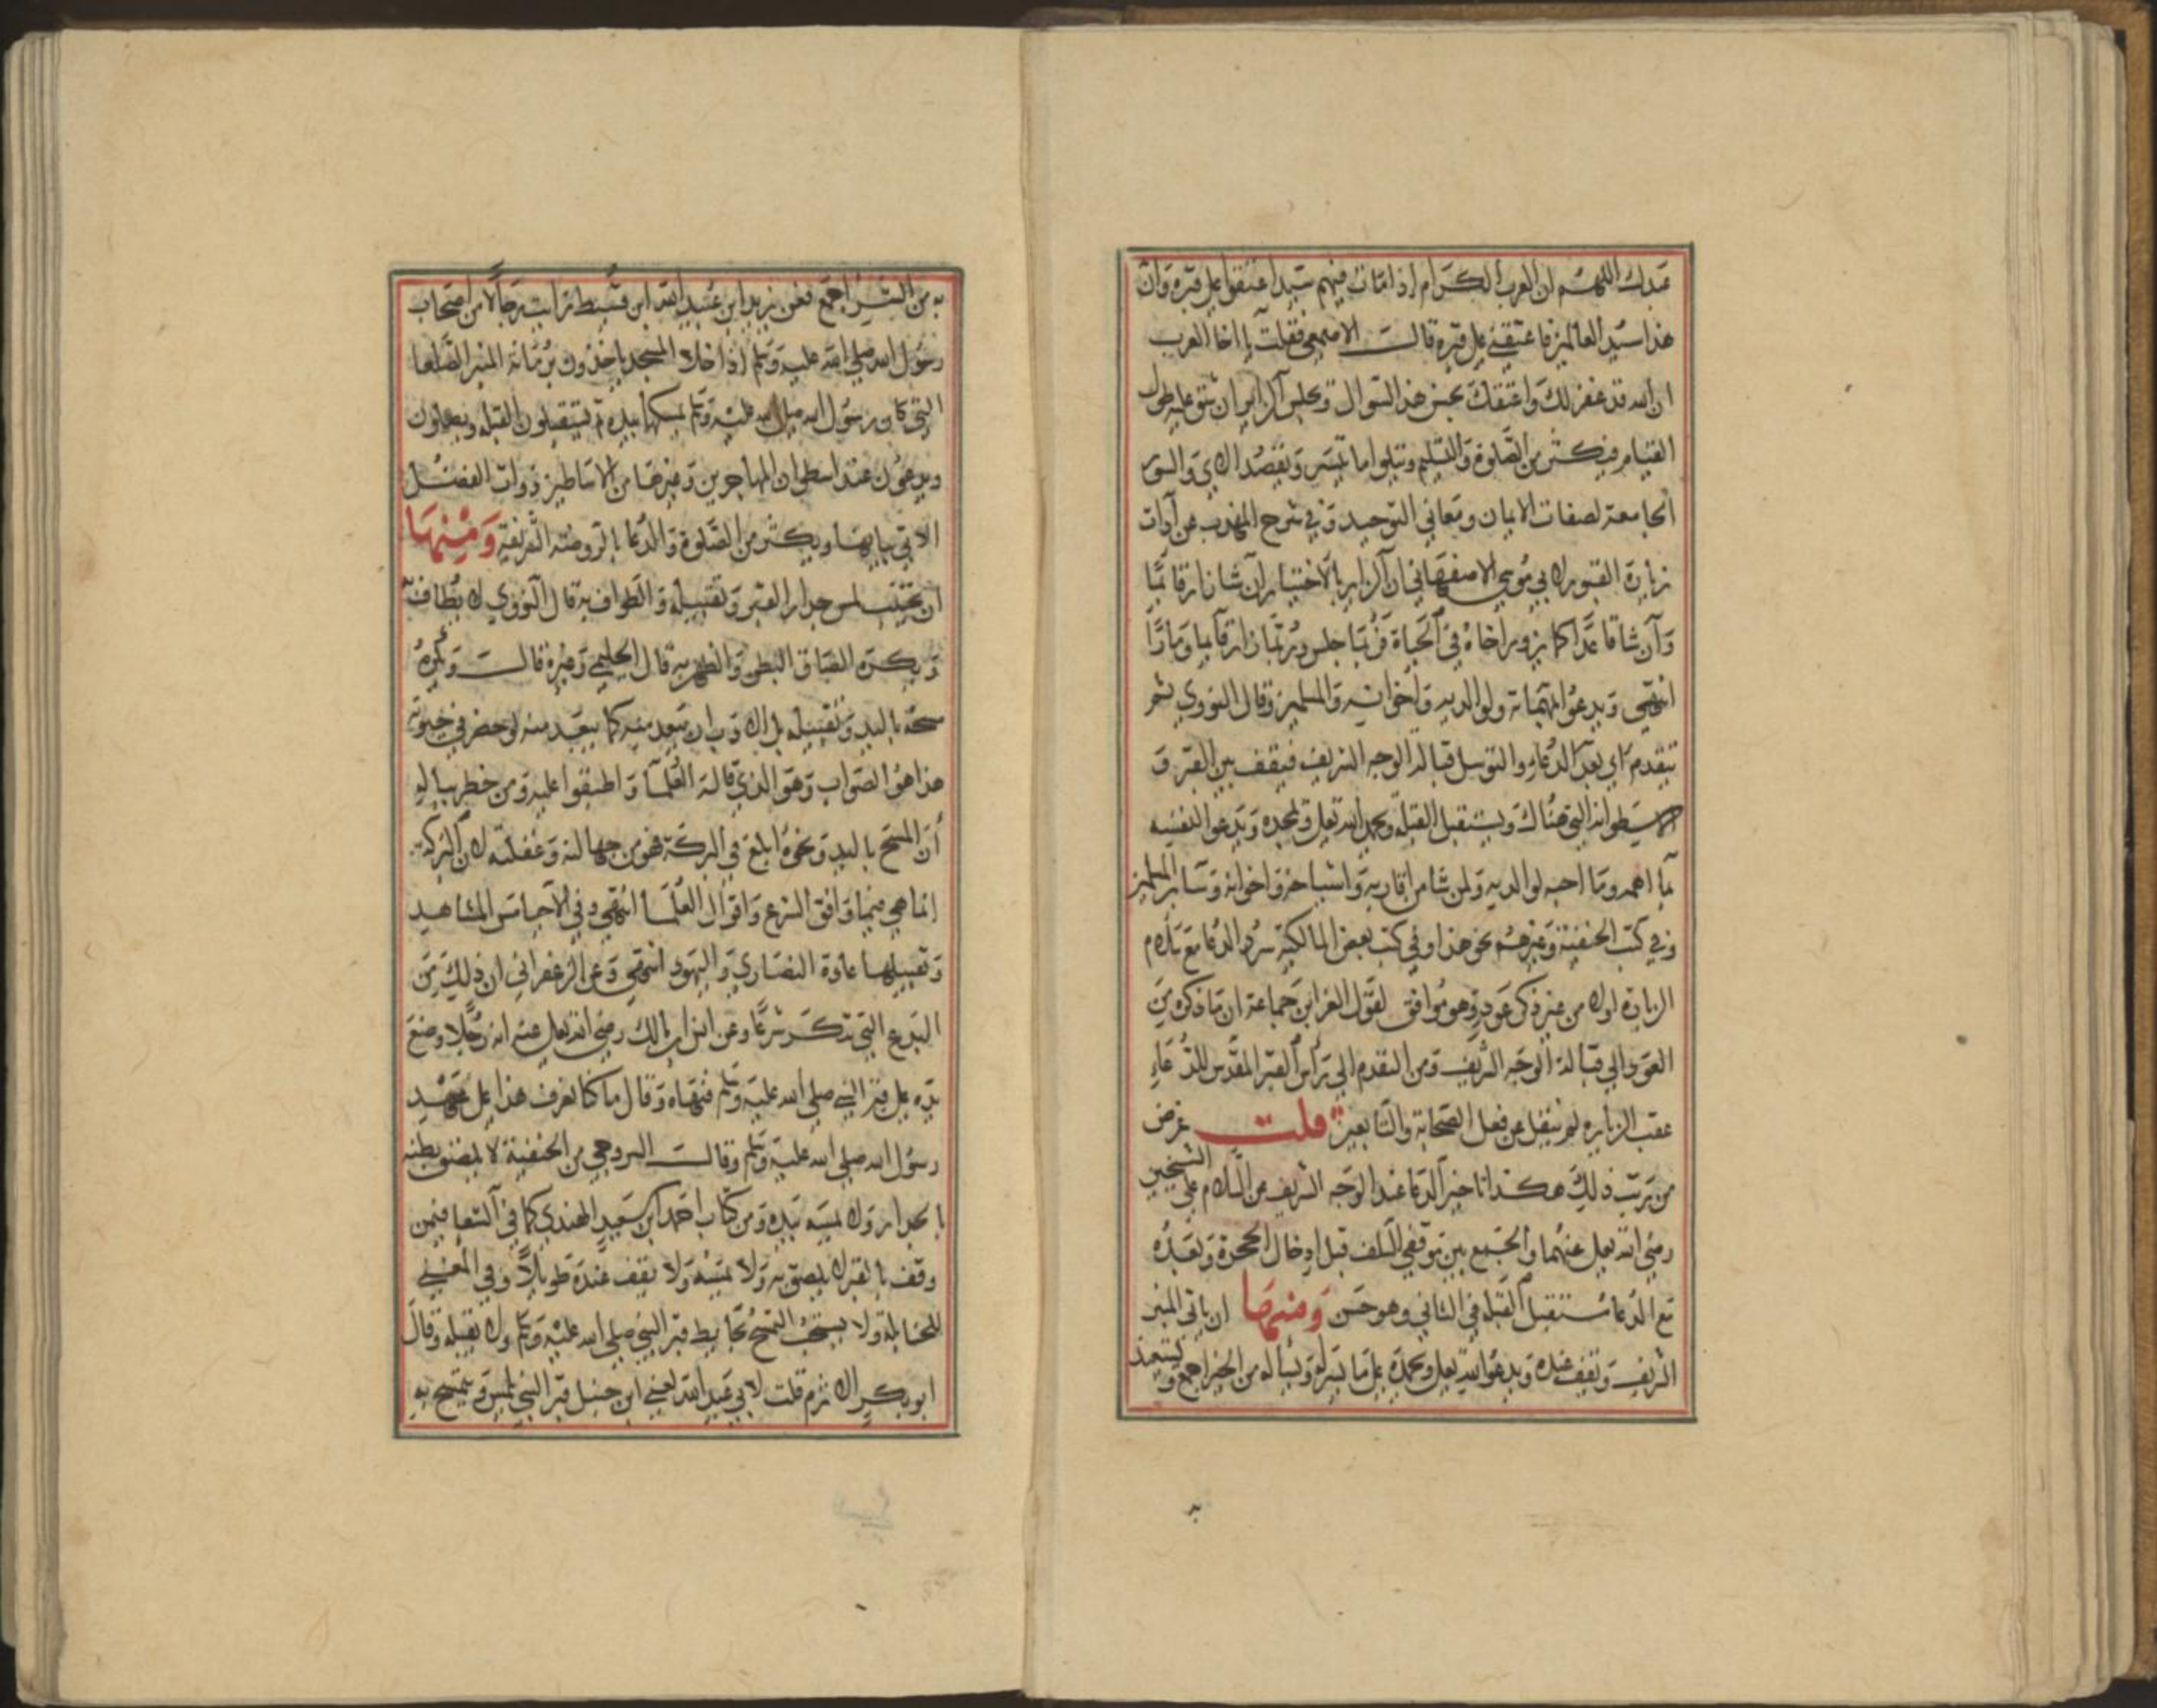 عبدك اللهم ان العرب الكرام اذا مات فيهم سيد اعتقوا على قبره وان
هذا سيد العالمين فاعتقني على قبره قالت الاصمعي فقلت يا اخا العرب
ان الله قد غفر لك واعتقك بحسن هذا السوال ويجلس الزاير ان شق عليه طول
القيام فيكثر من الصلوة والتسليم ويتلوا ما تيسر ويقصد الاي والسور
الجامعة لصفات الايمان ومعاني التوحيد وفي شرح المهذب عن آداب
زيارة القبور لابي موسى الاصفهاني ان الزاير بالاختيار ان شا زار قائما
وان شا قاعدا كما يزور اخاه في الحياة فربما جلس وربما زار قايما ومارا
انتهى ويدعو لمهماته ولوالديه واخوانه والمسلمين وقال النووي ثم
يتقدم اي بعد الدعاء والتوسل قبالة الوجه الشريف فيقف بين القبر و
الاسطوانة التي هناك ويستقبل القبلة ويحمد الله تعلى ويمجده ويدعو النفسه
بما اهمه وما احبه لوالديه ولمن شا من اقاربه واشياخه واخوانه وسائر المسلمين
وفي كتب الحنفية وغيرهم نحو هذا وفي كتب بعض المالكية سرد الدعا مع سلام
الزيارة اولا من غير ذكر عود وهو موافق لقول العز ابن جماعة ان ما ذكره من
العود الى قبالة الوجه الشريف ومن التقدم الى راس القبر المقدس للدعاء
عقب الزياره لم ينقل عن فعل الصحابة والتابعين قلت غرض
من رتب ذلك هكذا تاخير الدعا عند الوجه الشريف عن السلام على الشيخين
رضى الله تعلى عنهما والجمع بين موقفي السلف قبل ادخال الحجرة وبعده
مع الدعا مستقبل القبلة في الثاني وهو حسن ومنها ان ياتى المنبر
الشريف ويقف عنده ويدعو الله تعلى ويحمده على ما يسر له ويساله من الخير اجمع ويستعيذ
به من الشر اجمع فعن يزيد ابن عبيد الله ابن قسيط رايت رجالا من اصحاب
رسول الله صلى الله عليه وسلم اذا خلا المسجد ياخذون برمانة المنبر الصلعا
التي كان رسول الله صلى الله عليه وسلم يمسكها بيده ثم يستقبلون القبله ويصلون
ويدعون عند اسطوان المهاجرين وغيرها من الاساطين ذوات الفضل
الاتي بيانها ويكثر من الصلوة والدعا بالروضة الشريفة ومنها
ان يجتنب لمس جدار القبر وتقبيله والطواف به قال النووي لا يطاف
ويكره الصاق البطن والظهر به قال الحليمي وغيره قالت ويكره
مسحه باليد وتقبيله بل الادب ان يبعد منه كما يبعد منه لو حضر في حيوته
هذا هو الصواب وهو الذي قاله العلما واطبقوا عليه ومن خطر بباله
ان المسح باليد ونحوه ابلغ في البركة فهو من جهالته وغفلته لان البركة
انما هي فيما وافق الشرع واقوال العلما انتهى وفي الاحيا مس المشاهد
وتقبيلها عادة النصاري واليهود انتهى وعن الزعفراني ان ذلك من
البدع التي تنكر شرعا وعن انس ابن مالك رضى الله تعلى عنه انه رجلا وضع
يده على قبر النبي صلى الله عليه وسلم فنهاه وقال ما كنا نعرف هذا على عهد
رسول الله صلى الله عليه وسلم وقالت السروجي من الحنفية لا يلصق بطنه
بالجدار ولا يمسه بيده ومن كتاب احمد ابن سعيد الهندي كما في الشفا فيمن
وقف بالقبر لا يلصق به ولا يمسه ولا يقف عنده طويلا وفي المغني
للحنابلة ولا يستحب التمسح بحايط قبر النبي صلى الله عليه وسلم ولا يقبله وقال
ابو بكر الاثرم قلت لابي عبد الله يعني ابن حنبل قبر النبي يلمس ويتمسح به